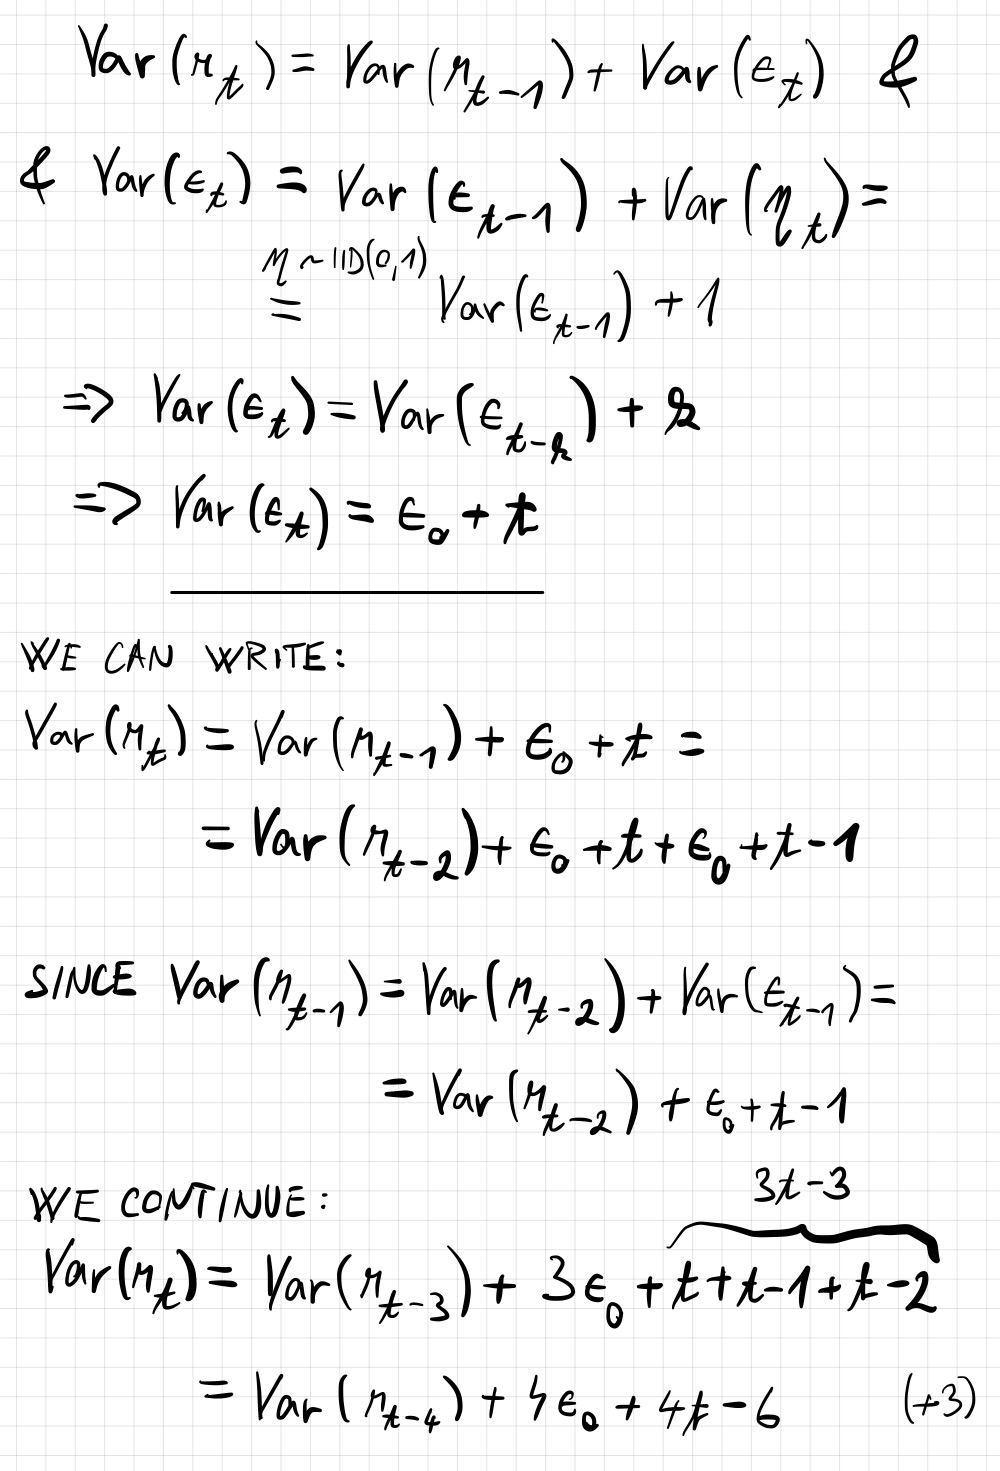 Var(r_t) = Var(r_{t-1}) + Var(ϵ_t) &
& Var(ϵ_t) = Var(ϵ_{t-1}) + Var(η_t) =
η ~ IID(0,1)
= Var(ϵ_{t-1}) + 1
=> Var(ϵ_t) = Var(ϵ_{t-k}) + k
=> Var(ϵ_t) = ϵ_0 + t
WE CAN WRITE:
Var(r_t) = Var(r_{t-1}) + ϵ_0 + t =
= Var(r_{t-2}) + ϵ_0 + t + ϵ_0 + t - 1
SINCE Var(r_{t-1}) = Var(r_{t-2}) + Var(ϵ_{t-1}) =
= Var(r_{t-2}) + ϵ_0 + t - 1
WE CONTINUE:
3t-3
Var(r_t) = Var(r_{t-3}) + 3ϵ_0 + t + t-1 + t-2
= Var(r_{t-4}) + 4ϵ_0 + 4t - 6 (+3)